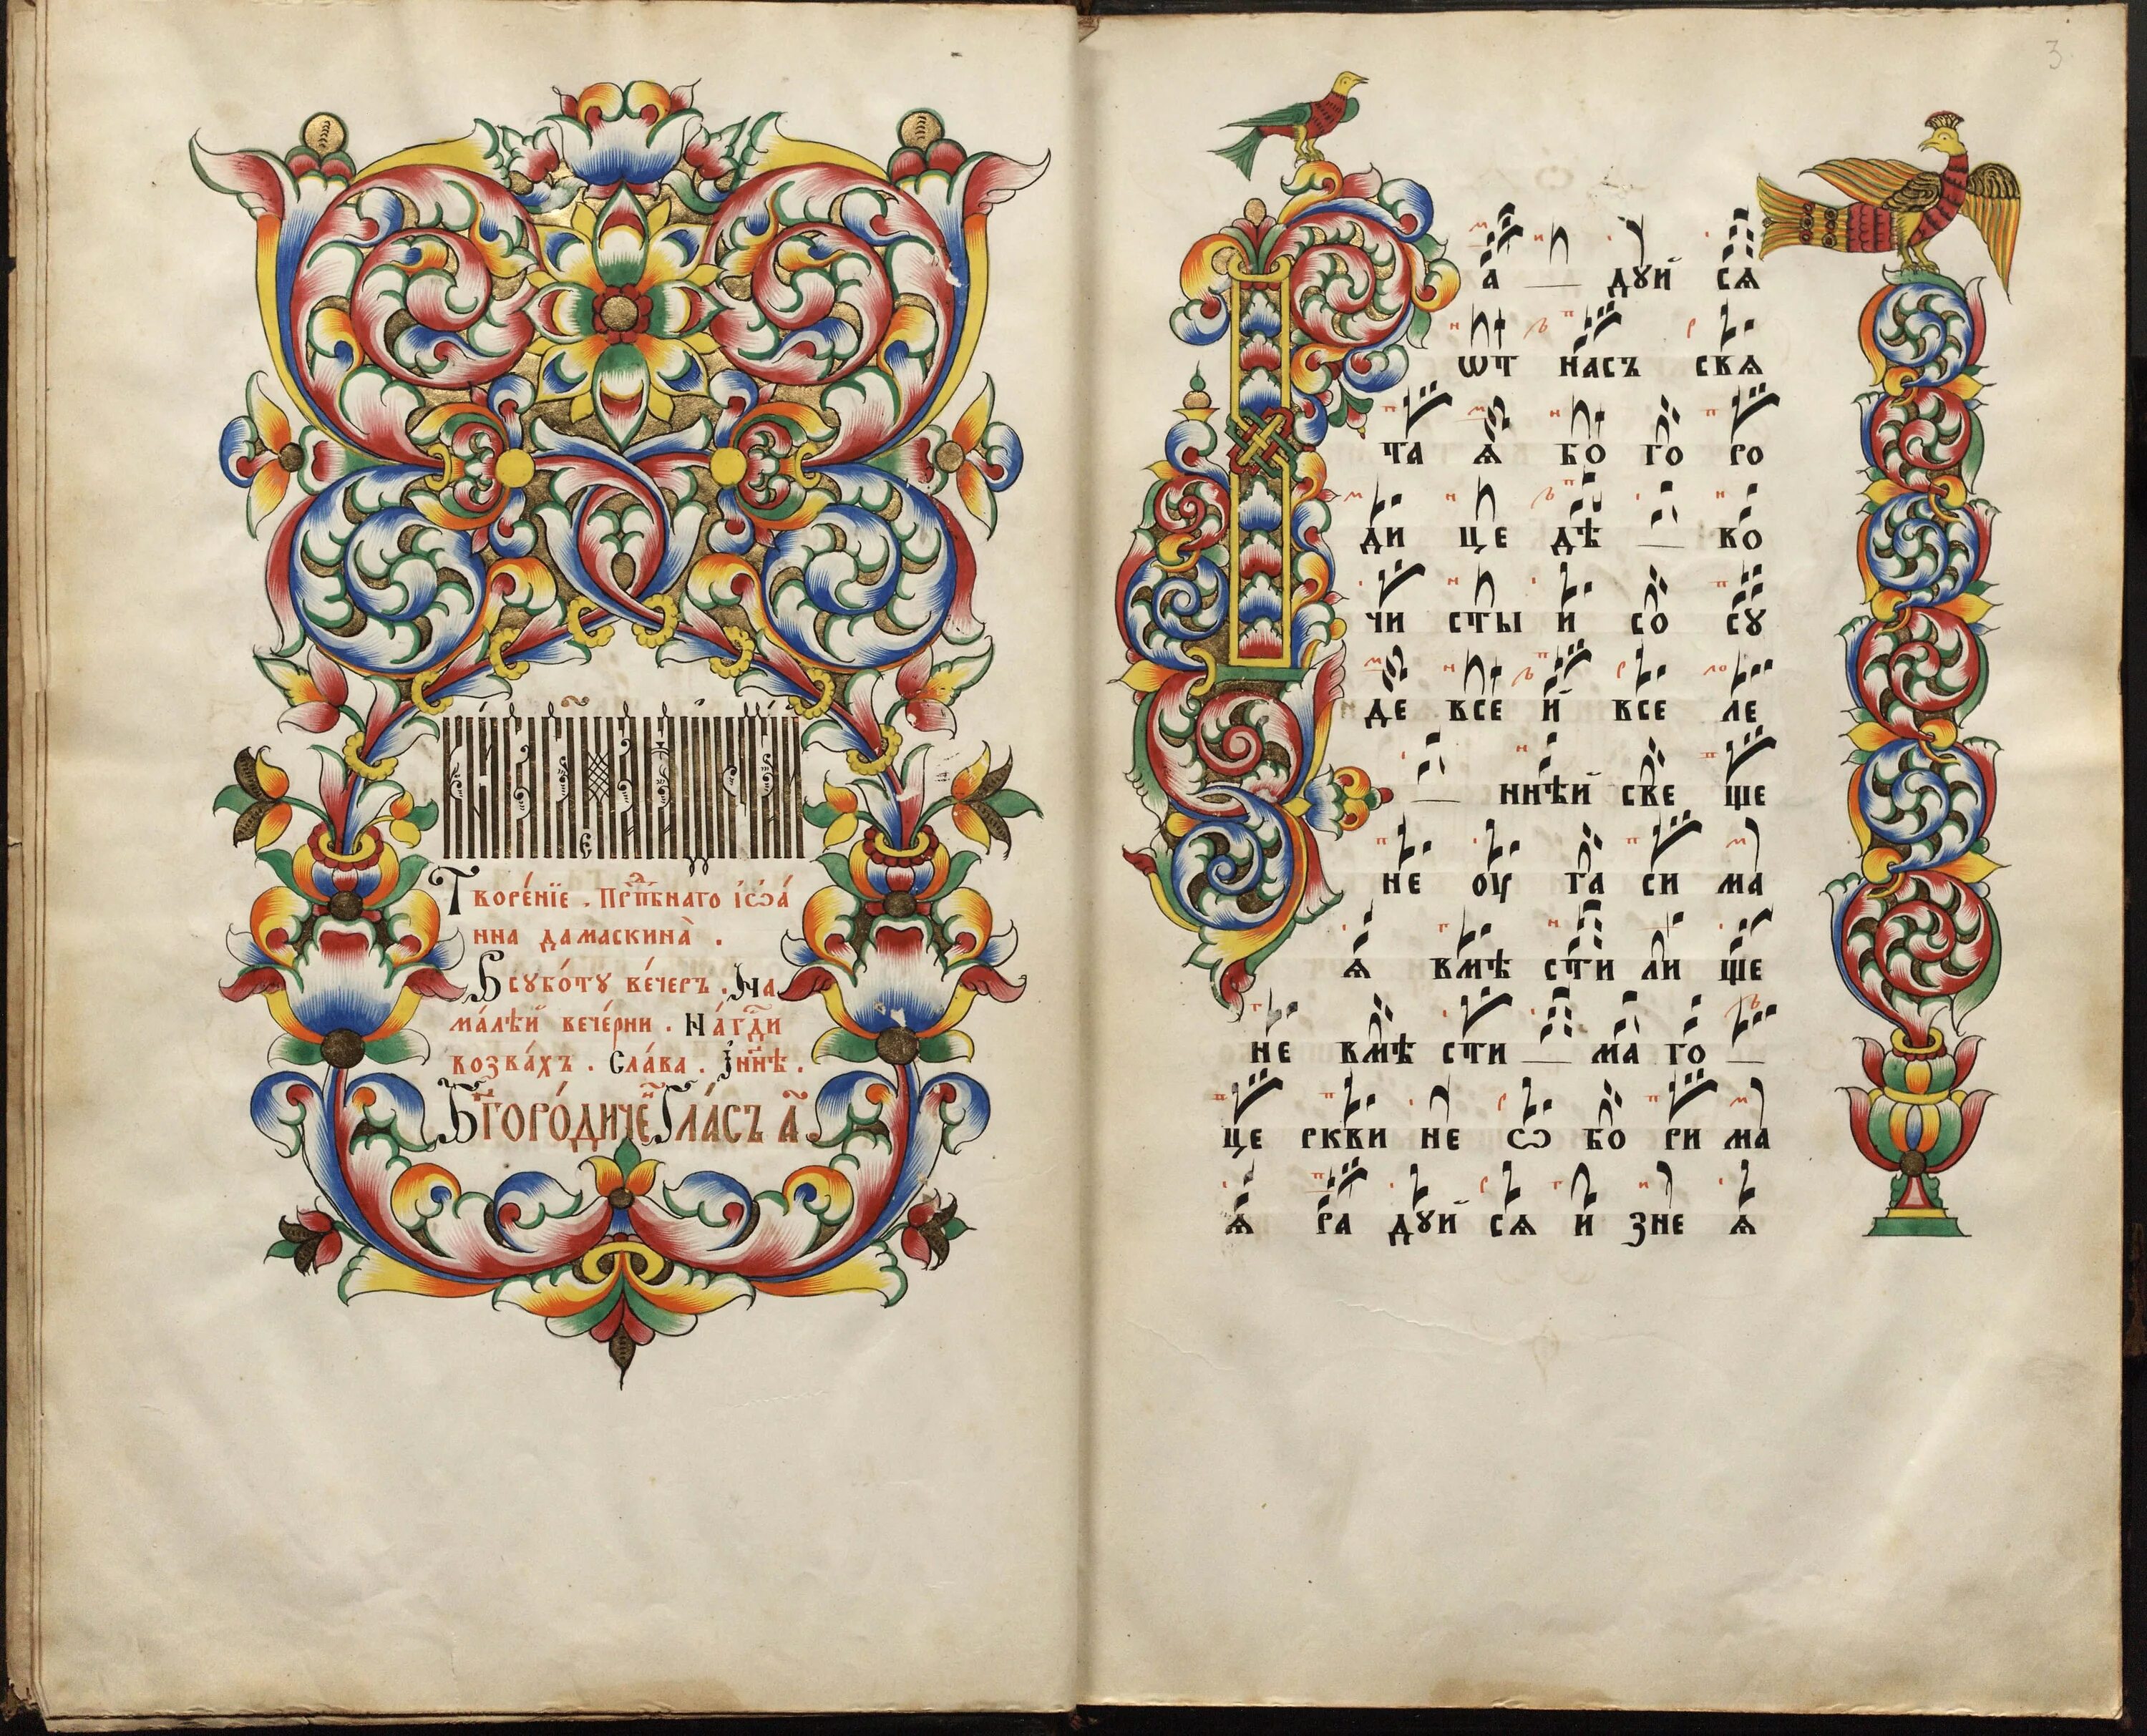 Творе́нїе . Прⷣпбнаго і҆ѡа́
нна дамаскина̀ .
В суббо́ту ве́черъ . На
ма́лѣй вече́рни . На́ гдⷭ҇и
возва́хъ . Сла́ва . І҆ нн҃ѣ .
Бг҃оро́диченъ Гла́съ а҃
3
А — дꙋй сѧ
ѿт насъ свѧ
та ѧ бо го ро
ди це дѣ — во
чи сты и со сꙋ
де все й все ле
— ннѣй све ще
не оу га си ма
ѧ вмѣ сти ли ще
не вмѣ сти — ма го —
це ркви не ѡ бо ри ма
ѧ ра дꙋй сѧ и зне ѧ